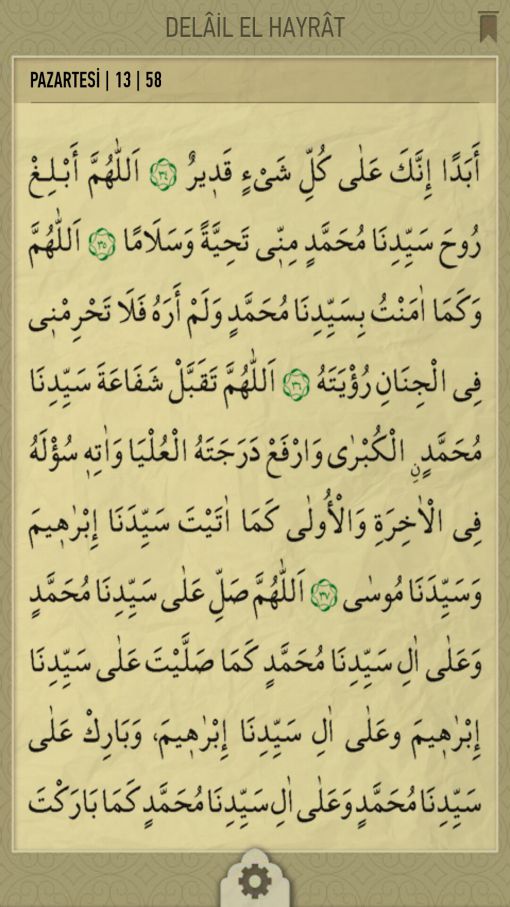 DELÂİL EL HAYRÂT
PAZARTESİ | 13 | 58
أَبَدًا إِنَّكَ عَلٰى كُلِّ شَىْءٍ قَدِيرٌ ٣٤ اَللّٰهُمَّ أَبْلِغْ
رُوحَ سَيِّدِنَا مُحَمَّدٍ مِنِّى تَحِيَّةً وَسَلَامًا ٣٥ اَللّٰهُمَّ
وَكَمَا اٰمَنْتُ بِسَيِّدِنَا مُحَمَّدٍ وَلَمْ أَرَهُ فَلَا تَحْرِمْنِى
فِى الْجِنَانِ رُؤْيَتَهُ ٣٦ اَللّٰهُمَّ تَقَبَّلْ شَفَاعَةَ سَيِّدِنَا
مُحَمَّدٍ نِ الْكُبْرٰى وَارْفَعْ دَرَجَتَهُ الْعُلْيَا وَاٰتِهِ سُؤْلَهُ
فِى الْاٰخِرَةِ وَالْأُولٰى كَمَا اٰتَيْتَ سَيِّدَنَا إِبْرٰهِيمَ
وَسَيِّدَنَا مُوسٰى ٣٧ اَللّٰهُمَّ صَلِّ عَلٰى سَيِّدِنَا مُحَمَّدٍ
وَعَلٰى اٰلِ سَيِّدِنَا مُحَمَّدٍ كَمَا صَلَّيْتَ عَلٰى سَيِّدِنَا
إِبْرٰهِيمَ وعَلٰى اٰلِ سَيِّدِنَا إِبْرٰهِيمَ، وَبَارِكْ عَلٰى
سَيِّدِنَا مُحَمَّدٍ وَعَلٰى اٰلِ سَيِّدِنَا مُحَمَّدٍ كَمَا بَارَكْتَ